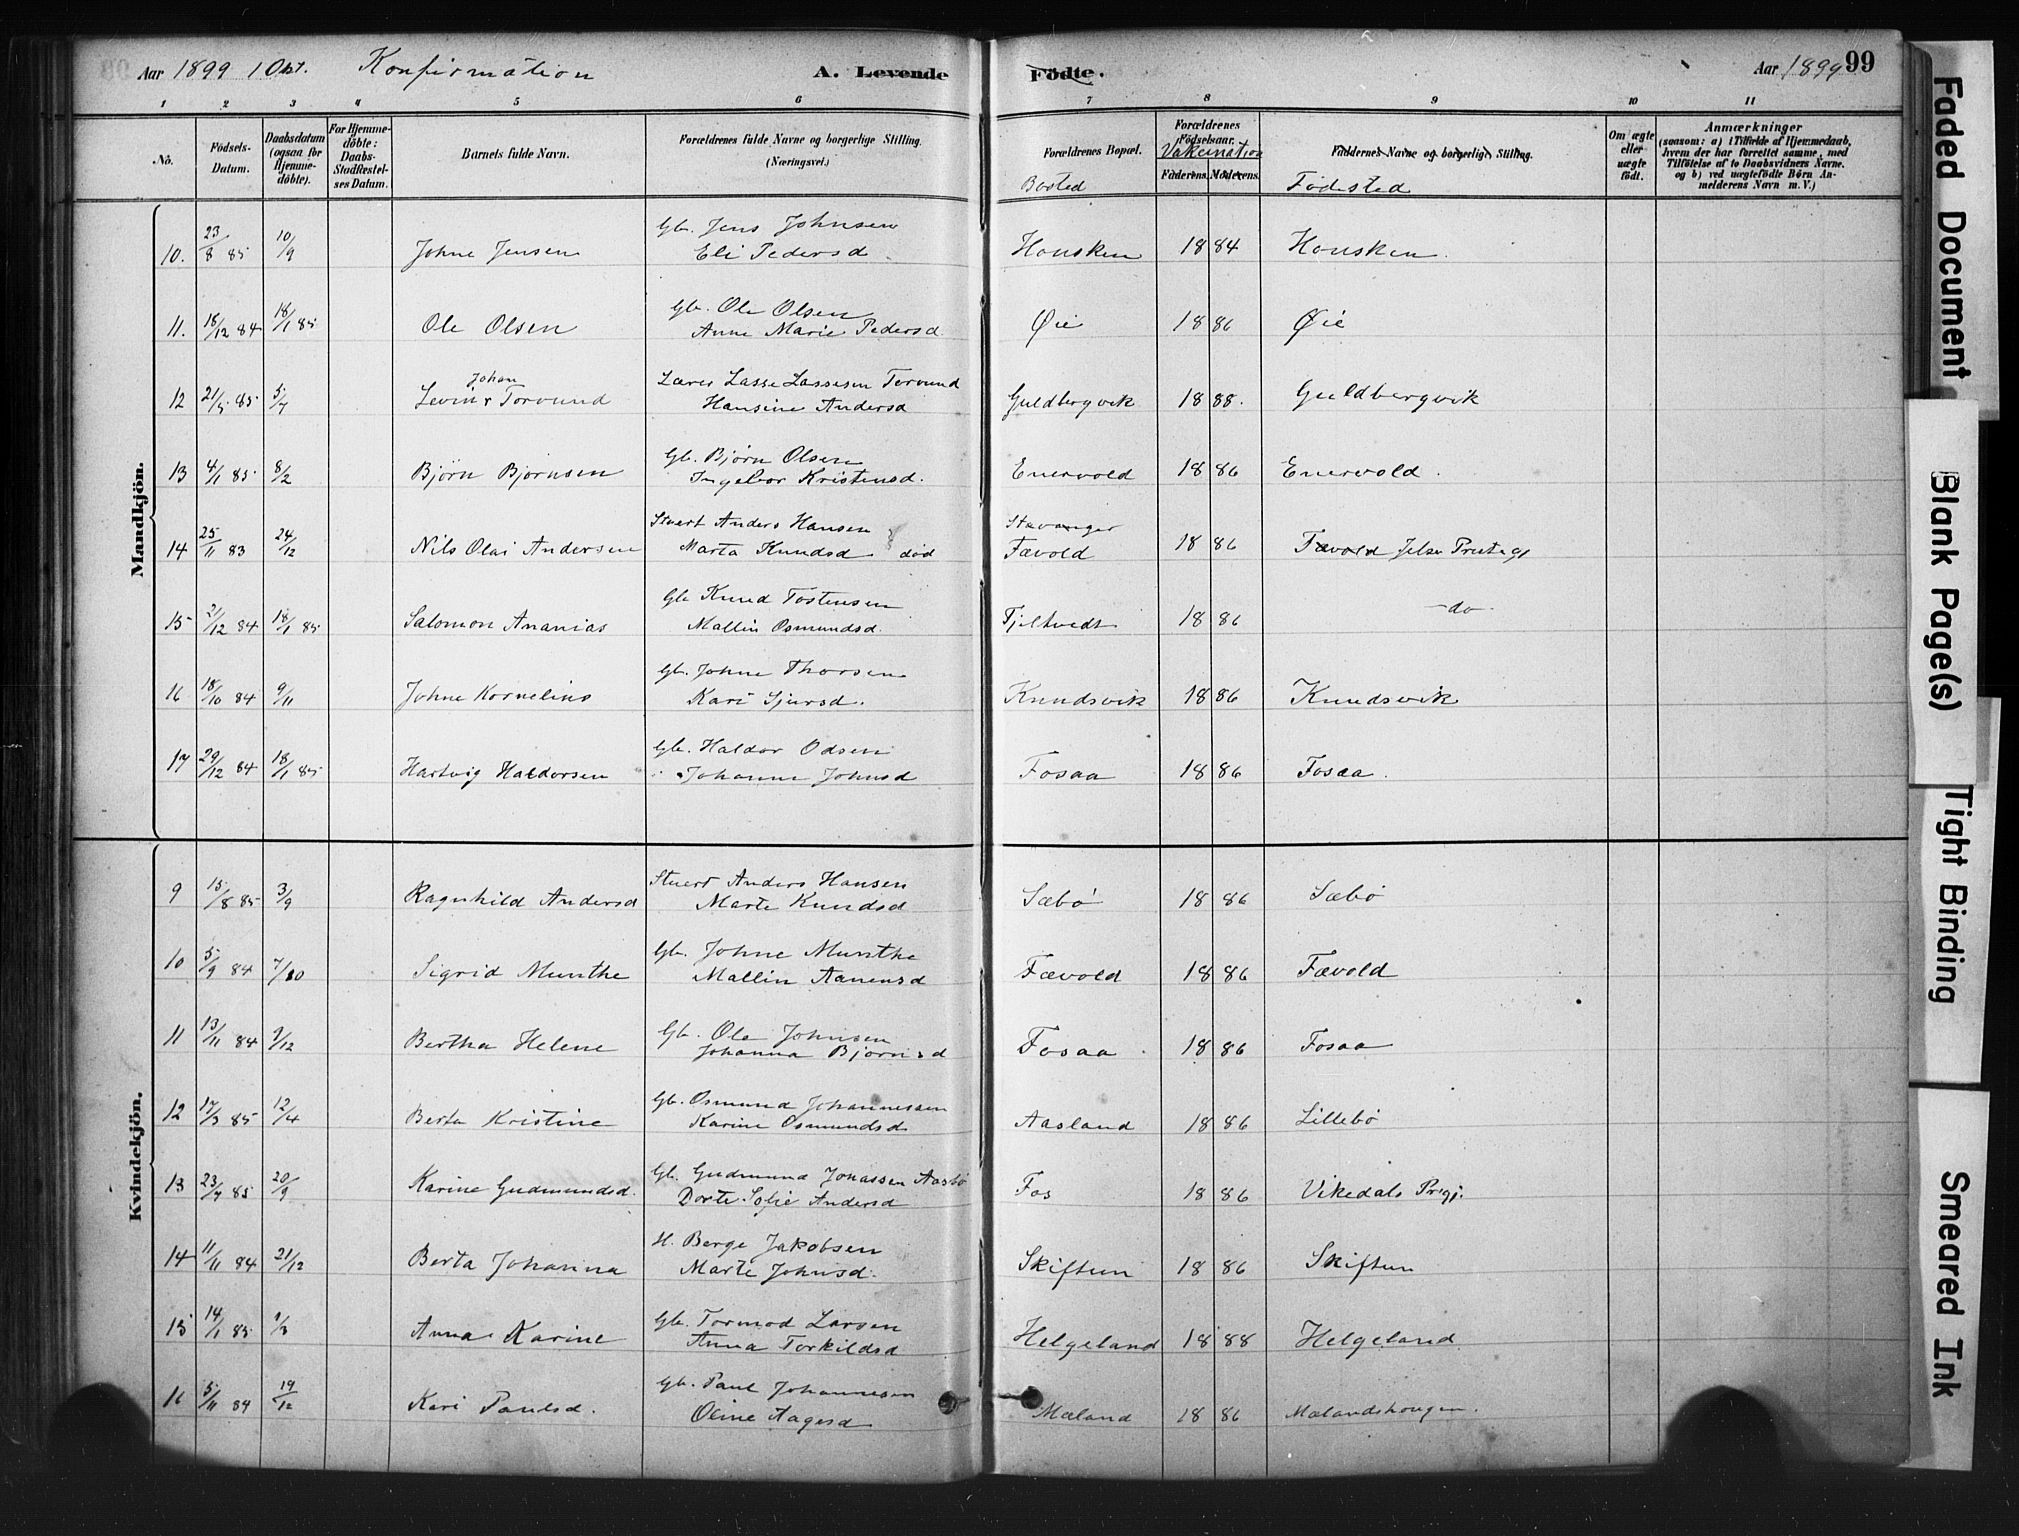 Aar 1899 1 Okt. Konfirmation A. Levende Fødte. Aar 1899 99
1 2 3 4 5 6 7 8 9 10 11
No. Fødsels-Datum. Daabsdatum (ogsaa for Hjemme-døbte). For Hjemme-døbte: Daabs-Stadfæstel-ses Datum. Barnets fulde Navn. Forældrenes fulde Navne og borgerlige Stilling. (Næringsvei.) Forældrenes Bopæl. Bosted Forældrenes Fødselsaar. Vakcination Faderens. Moderens. Faddernes Navne og borgerlige Stilling. Fødested Om ægte eller uægte født. Anmærkninger (saasom: a) i Tilfælde af Hjemmedaab, hvem der har forrettet samme, med Tilføielse af to Daabsvidners Navne. og b) ved uægtefødte Børn An-melderens Navn m. V.)
Mandkjön.
10. 23/8 85 10/9 Johne Jensen Gb. Jens Johnsen Housken 18 84 Housken.
Eli Pedersd.
11. 18/12 84 18/1 85 Ole Olsen Gb. Ole Olsen Øie 18 86 Øie
Anne Marie Pedersd.
Johan
12 21/5 85 5/7 Levin Torvund Lærer Lasse Lassesen Torvund Guldbergvik 18 88. Guldbergvik
Hansine Andersd
13 4/1 85 8/2 Björn Bjørnsen Gb. Bjørn Olsen Enervold 18 86 Enervold.
Ingebor Kristensd.
14 25/11 83 24/12 Nils Olai Andersen Stuert Anders Hansen Stavanger
Marta Knudsd død Fævold 18 86 Fævold Jelse
15 2/12 84 18/1 85 Salomon Ananias Gb Knud Tostensen Fjeltvedt 18 86 -do-
Mallin Osmundsd.
16 18/10 84 9/11 Johne Kornelius Gb. Johne Thorsen Knudsvik 18 86 Knudsvik
Kari Sjursd.
17 29/12 84 18/1 85 Hartvig Haldorsen Gb. Haldor Odsen Fosaa 18 86 Fosaa.
Johanne Johnsd
Kvindekjön.
9 15/8 85 3/9 Ragnhild Andersd Stuert Anders Hansen Sæbö 18 86 Sæbö
Marte Knudsd
10 5/9 84 7/10 Sigrid Munthe Gb. Johne Munthe Fævold 18 86 Fævold
Mallin Aanensd
11 13/11 84 7/12 Bertha Helene Gb. Ole Johnsen Fosaa 18 86 Fosaa
Johanna Bjørnsd
12 17/3 85 12/4 Berta Kristine Gb. Osmund Johannessen Aasland 18 86 Lillebø
Karine Osmundsd
13 23/7 85 20/9 Karine Gudmundsd. Gb. Gudmund Jonassen Aasbø Fos 18 86 Vikedals Prgj.
Dorte Sofie Andersd
14 11/11 84 21/12 Berta Johanna H. Berge Jakobsen Skiftun 18 86 Skiftun
Marte Johnsd.
15 14/1 85 1/3 Anna Karine Gb. Tormod Larsen Helgeland 18 88 Helgeland
Anna Torkildsd
16 5/11 84 14/12 Kari Paulsd. Gb. Paul Johannesen Mæland 18 86 Mælandshougen.
Oline Aagesd
Faded Document
Blank Page(s)
Tight Binding
Smeared Ink